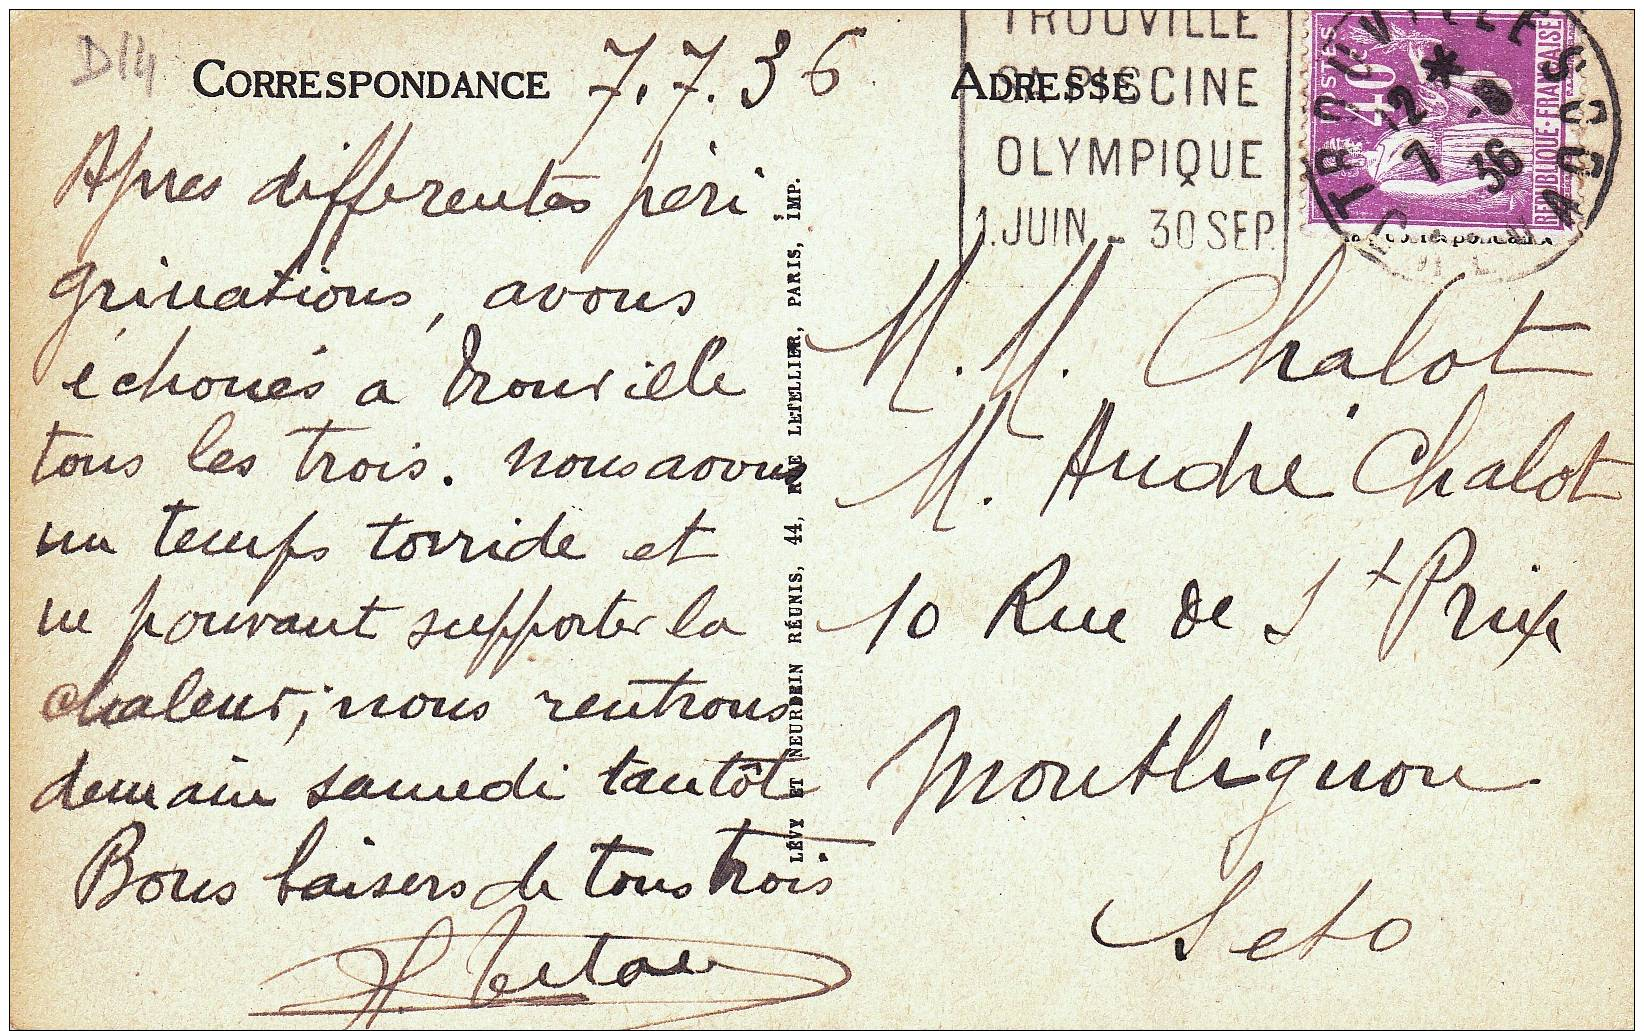 D14
CORRESPONDANCE
7.7.36
Apres differentes péri
grinations, avons
échoués a Trouville
tous les trois. nous avons
un temps torride et
ne pouvant supporter la
chaleur, nous rentrons
demain samedi tantôt
Bons baisers de tous trois
LÉVY ET NEURDEIN RÉUNIS, 44, RUE LETELLIER, PARIS, IMP.
ADRESSE
TROUVILLE
SA PISCINE
OLYMPIQUE
1.JUIN - 30 SEP.
POSTES
40c
RÉPUBLIQUE-FRANÇAISE
TROUVILLE S
CALVADOS
12 * 8
7 36
M. M. Chalot
M. André Chalot
10 Rue de St Prix
Montlignon
Seto